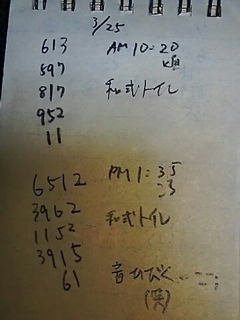 3/25
613 AM 10:20
597
817 和式トイレ
952
11
6512 PM 1:35
3962 23
1152 和式トイレ
3915
61 音ひびく
(笑)